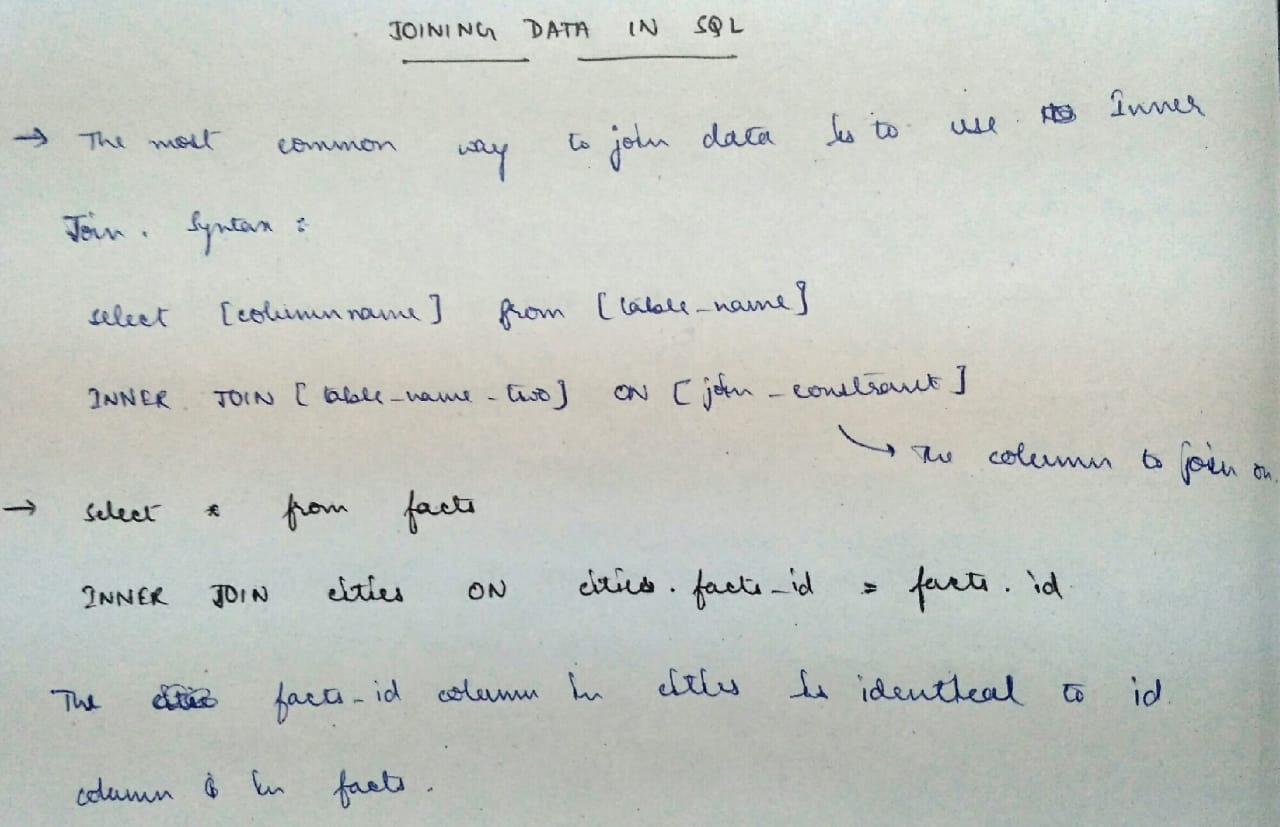 JOINING DATA IN SQL
→ The most common way to join data is to use Inner
Join. Syntax :
select [column name] from [table_name]
INNER JOIN [table_name_two] ON [join_constraint]
↘ The column to join on.
→ select * from facts
INNER JOIN cities ON cities.facts_id = facts.id
The facts_id column in cities is identical to id
column in facts.